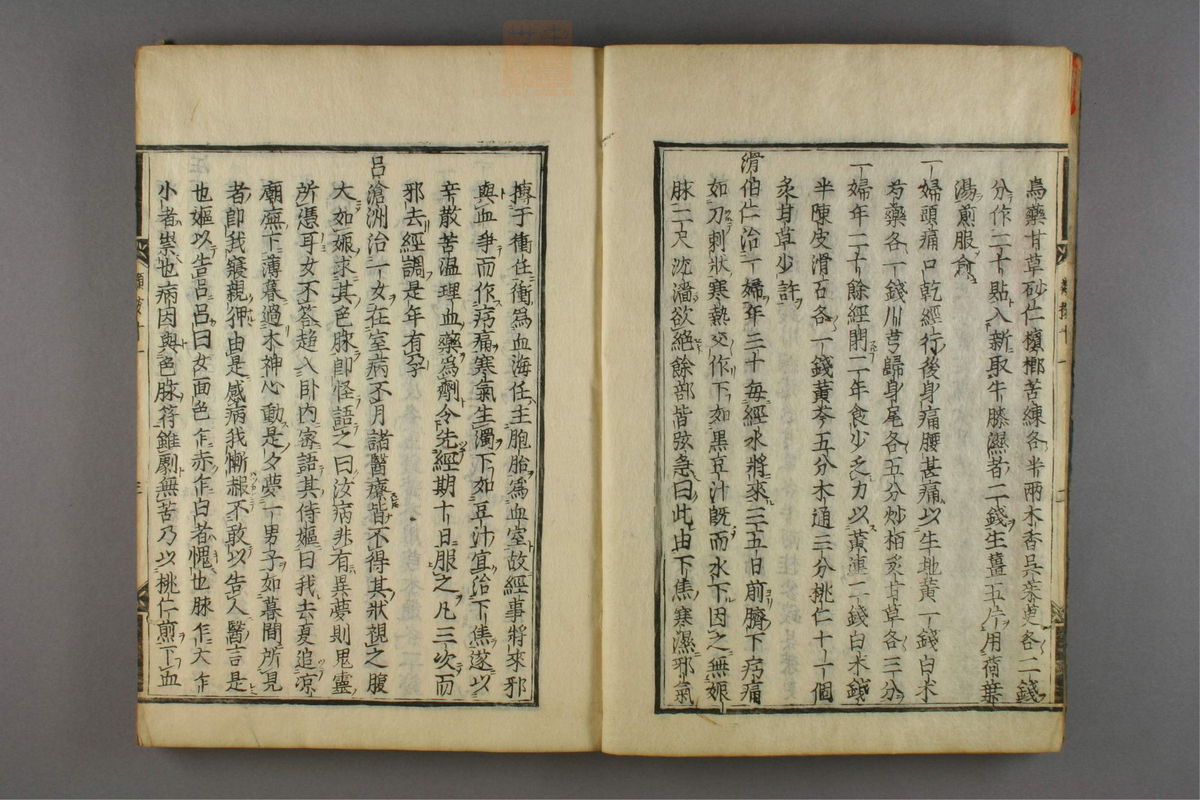 烏藥甘草砂仁檳榔苦練各半兩木香吳茱萸各二錢
分作二十貼入新取牛膝濕者二錢生薑五片用荷葉
湯煎服愈
一婦頭痛口乾經行後身痛腰甚痛以生地黃一錢白朮
芍藥各一錢川芎歸身尾各五分炒栢炙甘草各三分
一婦年二十餘經閉二年食少乏力以黃連二錢白朮錢
半陳皮滑石各一錢黃芩五分木通三分桃仁十一個
炙甘草少許
滑伯仁治一婦年三十每經水將來三五日前臍下㽲痛
如刀刺狀寒熱交作下如黑豆汁既而水下因之無娠
脉二尺沈濇欲絕餘部皆弦急曰此由下焦寒濕邪氣
搏于衝任衝爲血海任主胞胎爲血室故經事將來邪
與血爭而作㽲痛寒氣生濁下如豆汁宜治下焦遂以
辛散苦温理血藥爲劑令先經期十日服之凡三次而
邪去經調是年有孕
呂滄洲治一女在室病不月諸醫療皆不得其狀視之腹
大如娠求其色脉卽怪語之曰汝病非有異夢則鬼靈
所憑耳女不答趨入臥內密語其侍嫗曰我去夏追涼
廟廡下薄暮過木神心動是夕夢一男子如暮間所見
者卽我寢親狎由是感病我慚赧不敢以告人醫言是
也嫗以告呂呂曰女面色乍赤乍白者愧也脉乍大乍
小者祟也病因與色脉符雖劇無苦乃以桃仁煎下血